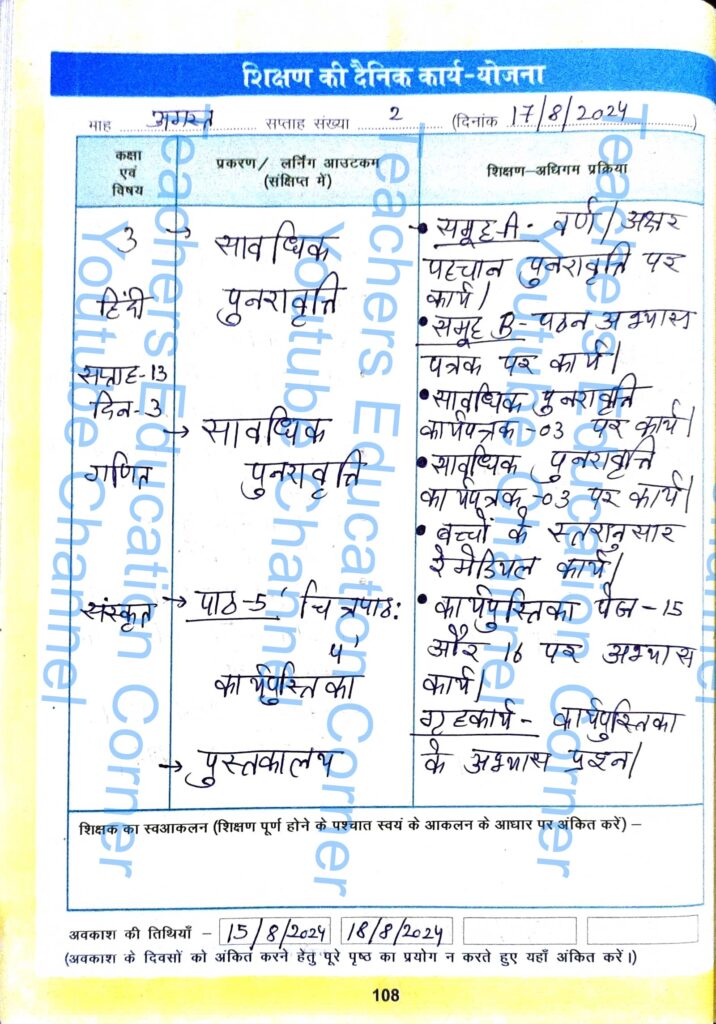 शिक्षण की दैनिक कार्य-योजना
माह अगस्त सप्ताह संख्या 2 (दिनांक 17/8/2024)
कक्षा
एवं
विषय
प्रकरण/ लर्निंग आउटकम
(संक्षिप्त में)
शिक्षण-अधिगम प्रक्रिया
3
हिंदी
सप्ताह-13
दिन-3
गणित
संस्कृत
→ सावधिक
पुनरावृत्ति
→ सावधिक
पुनरावृत्ति
→ पाठ-5 'चित्रपाठ:
कार्यपुस्तिका
→ पुस्तकालय
• समूह-A- वर्ण/अक्षर
पहचान पुनरावृत्ति पर
कार्य।
• समूह B- पठन अभ्यास
पत्रक पर कार्य।
• सावधिक पुनरावृत्ति
कार्यपत्रक-03 पर कार्य।
• सावधिक पुनरावृत्ति
कार्यपत्रक-03 पर कार्य।
• बच्चों के स्तरानुसार
रेमेडियल कार्य।
• कार्यपुस्तिका पेज-15
और 16 पर अभ्यास
कार्य।
गृहकार्य- कार्यपुस्तिका
के अभ्यास प्रश्न।
शिक्षक का स्वआकलन (शिक्षण पूर्ण होने के पश्चात स्वयं के आकलन के आधार पर अंकित करें) –
अवकाश की तिथियाँ – 15/8/2024 18/8/2024
(अवकाश के दिवसों को अंकित करने हेतु पूरे पृष्ठ का प्रयोग न करते हुए यहाँ अंकित करें।)
108
Teachers Education Corner
Youtube Channel
Teachers Education Corner
Youtube Channel
Teachers Education Corner
Youtube Channel